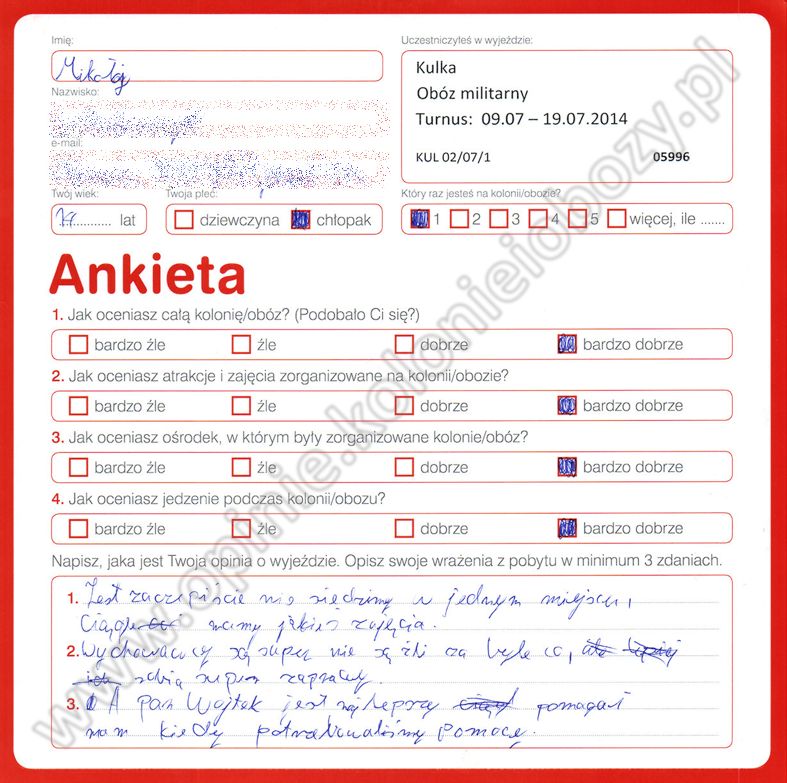 Imię:
Mikołaj
Nazwisko:
e-mail:
Twój wiek:
lat
Twoja płeć:
dziewczyna chłopak
Uczestniczyłeś w wyjeździe:
Kulka
Obóz militarny
Turnus: 09.07 – 19.07.2014
KUL 02/07/1 05996
Który raz jesteś na kolonii/obozie?
1 2 3 4 5 więcej, ile .......
Ankieta
1. Jak oceniasz całą kolonię/obóz? (Podobało Ci się?)
bardzo źle źle dobrze bardzo dobrze
2. Jak oceniasz atrakcje i zajęcia zorganizowane na kolonii/obozie?
bardzo źle źle dobrze bardzo dobrze
3. Jak oceniasz ośrodek, w którym były zorganizowane kolonie/obóz?
bardzo źle źle dobrze bardzo dobrze
4. Jak oceniasz jedzenie podczas kolonii/obozu?
bardzo źle źle dobrze bardzo dobrze
Napisz, jaka jest Twoja opinia o wyjeździe. Opisz swoje wrażenia z pobytu w minimum 3 zdaniach.
1. Jest zaczepiście nie siedzimy w jednym miejscu,
Ciągle mamy jakieś zajęcia.
2. Wychowawcy są super nie są źli za byle co,
robią super zaprawy.
3. A Pan Wojtek jest najlepszy pomagał
nam kiedy potrzebowaliśmy pomocy.
www.opinie.kolonieiobozy.pl